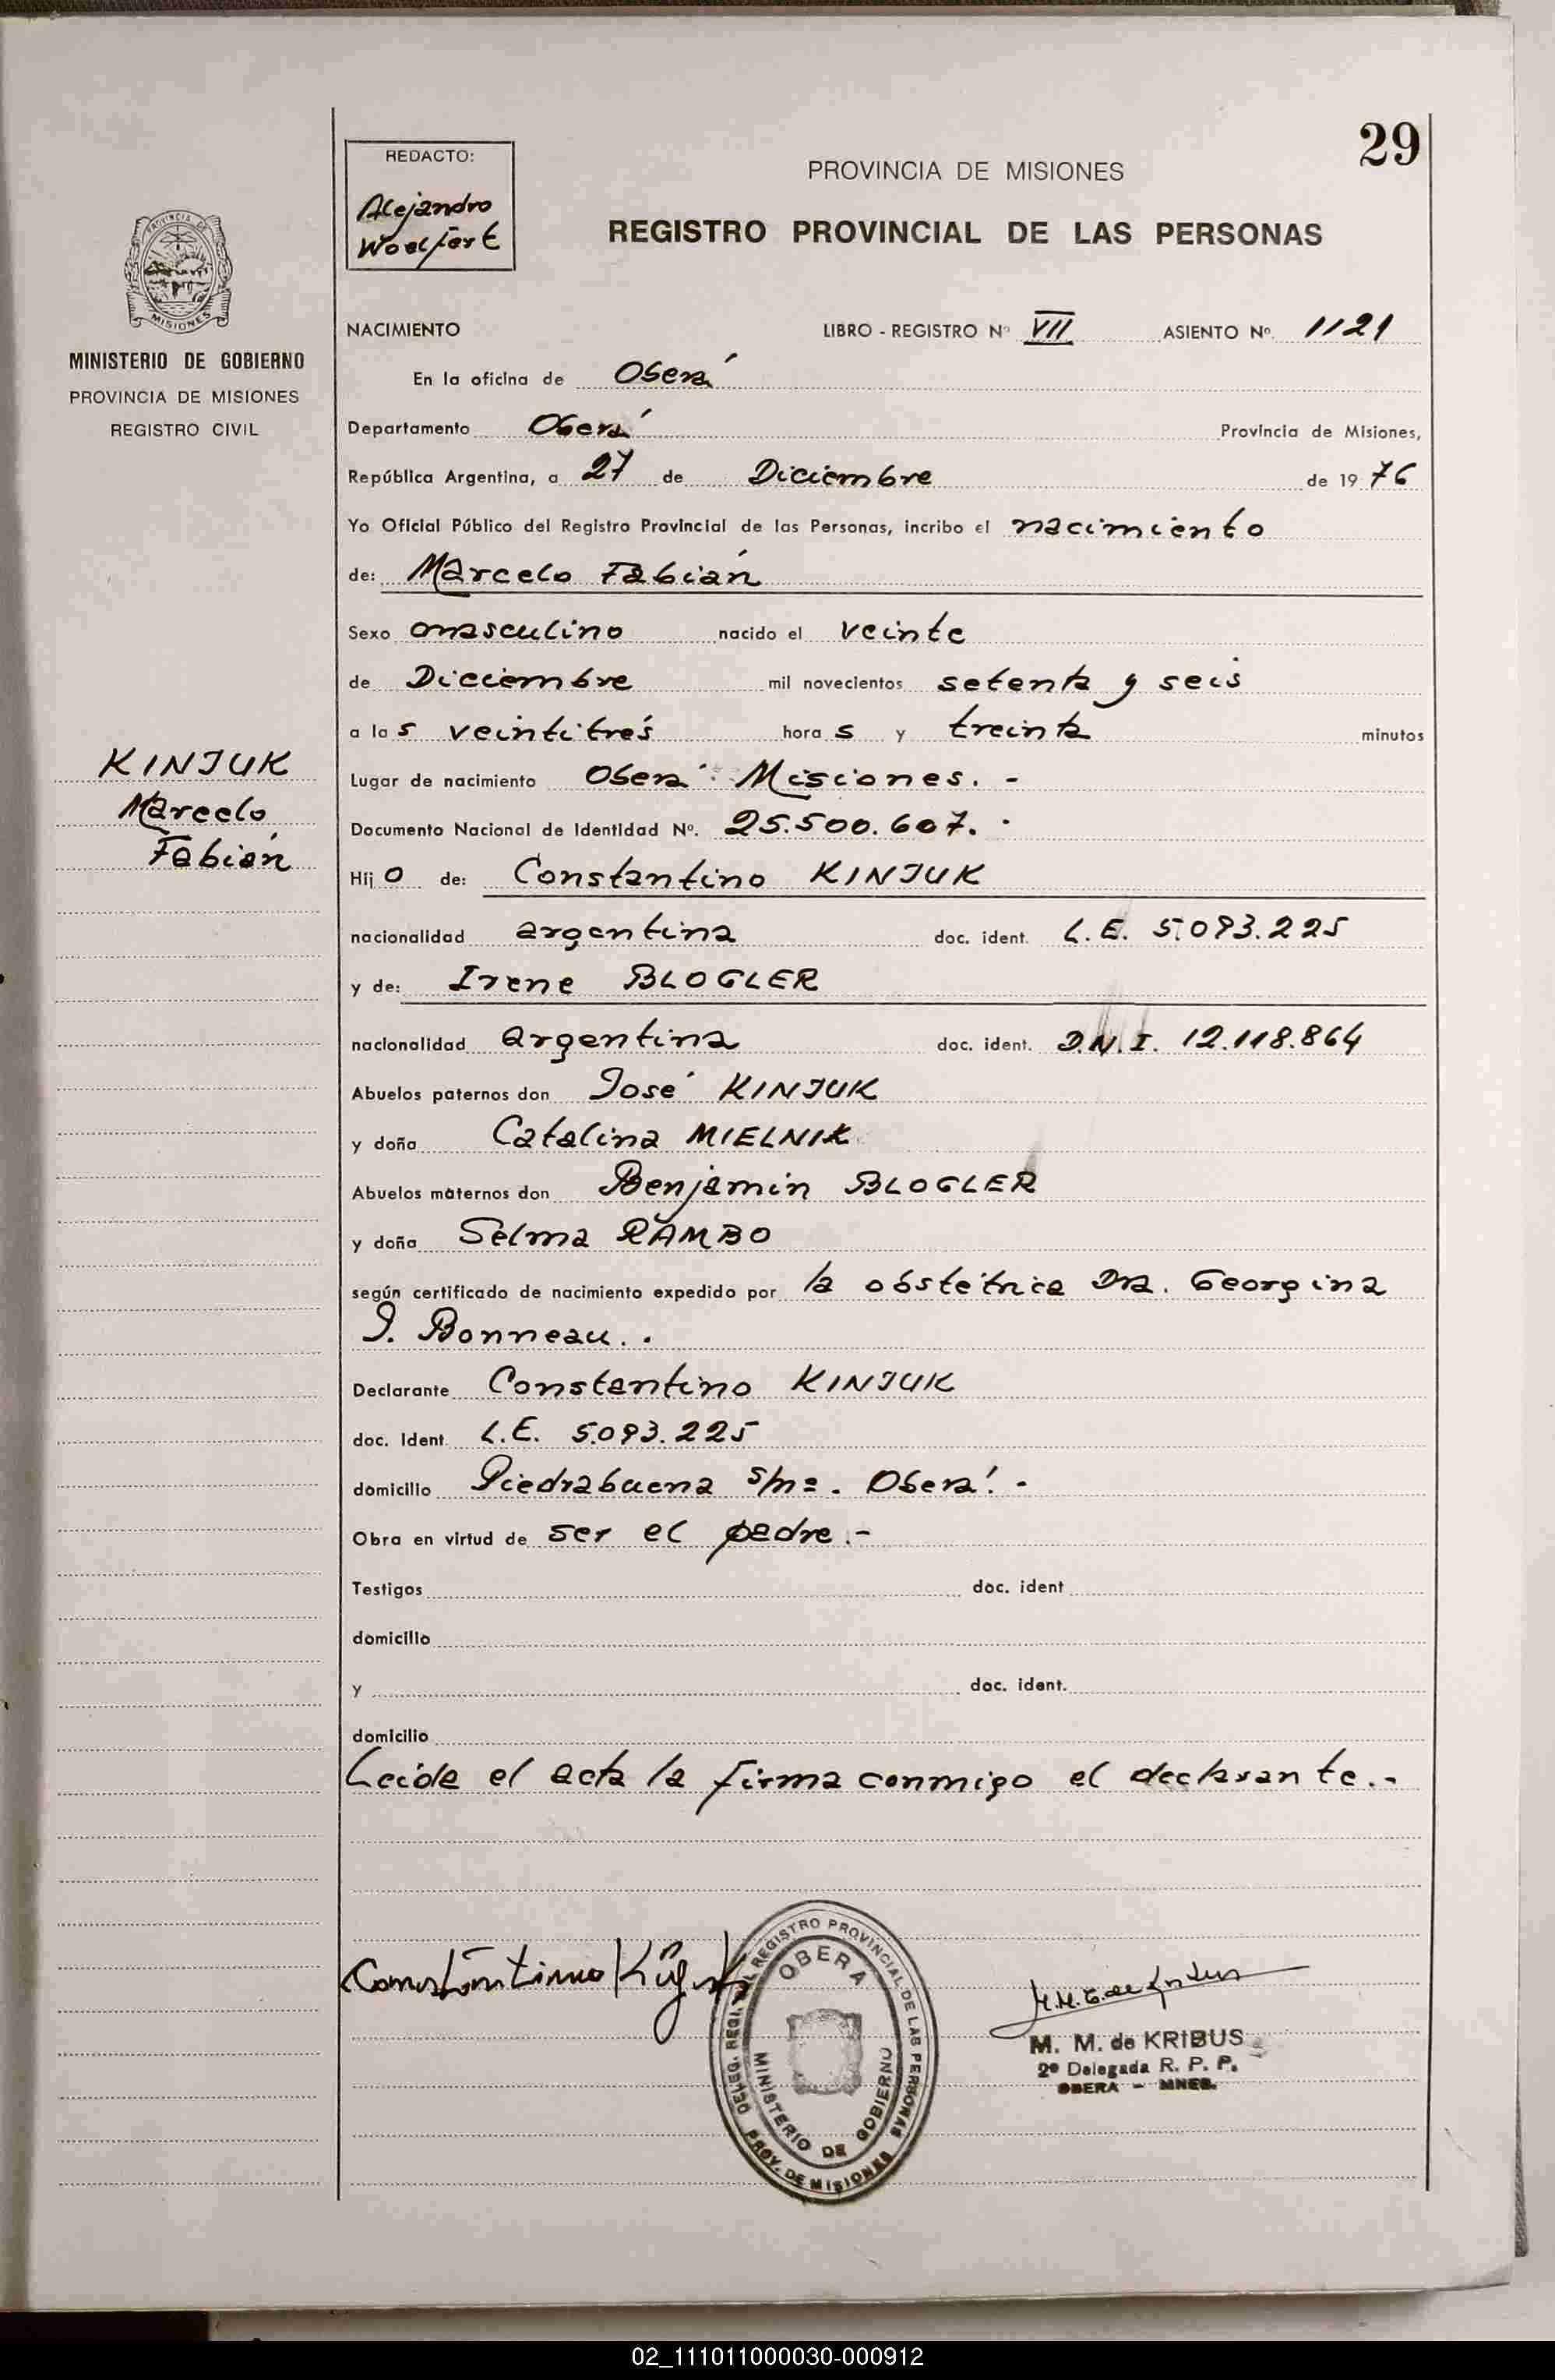 29
REDACTO:
Alejandro
Woelfert
PROVINCIA DE MISIONES
REGISTRO PROVINCIAL DE LAS PERSONAS
MISIONES
MINISTERIO DE GOBIERNO
PROVINCIA DE MISIONES
REGISTRO CIVIL
KINJUK
Marcelo
Fabián
NACIMIENTO LIBRO - REGISTRO Nº VII ASIENTO Nº 1121
En la oficina de Oberá
Departamento Oberá Provincia de Misiones,
República Argentina, a 27 de Diciembre de 1976
Yo Oficial Público del Registro Provincial de las Personas, incribo el nacimiento
de: Marcelo Fabián
Sexo masculino nacido el veinte
de Diciembre mil novecientos setenta y seis
a las veintitrés horas y treinta minutos
Lugar de nacimiento Oberá Misiones. -
Documento Nacional de Identidad Nº. 25.500.607. -
Hijo de: Constantino KINJUK
nacionalidad argentina doc. ident. L.E. 5.093.225
y de: Irene BLOGLER
nacionalidad argentina doc. ident. D.N.I. 12.118.864
Abuelos paternos don José KINJUK
y doña Catalina MIELNIK
Abuelos maternos don Benjamín BLOGLER
y doña Selma RAMBO
según certificado de nacimiento expedido por la obstétrica Dra. Georgina
J. Bonneau. .
Declarante Constantino KINJUK
doc. Ident. L.E. 5.093.225
domicilio Piedrabuena s/nº. Oberá. -
Obra en virtud de ser el padre.-
Testigos doc. ident
domicilio
y doc. ident.
domicilio
Leída el acta la firma conmigo el declarante.-
Constantino
DELEG. REGL. DEL REGISTRO PROVINCIAL DE LAS PERSONAS
OBERA
MINISTERIO DE GOBIERNO
PROV. DE MISIONES
M. M. de KRIBUS
2ª Delegada R. P. P.
OBERA - MNES.
02_111011000030-000912